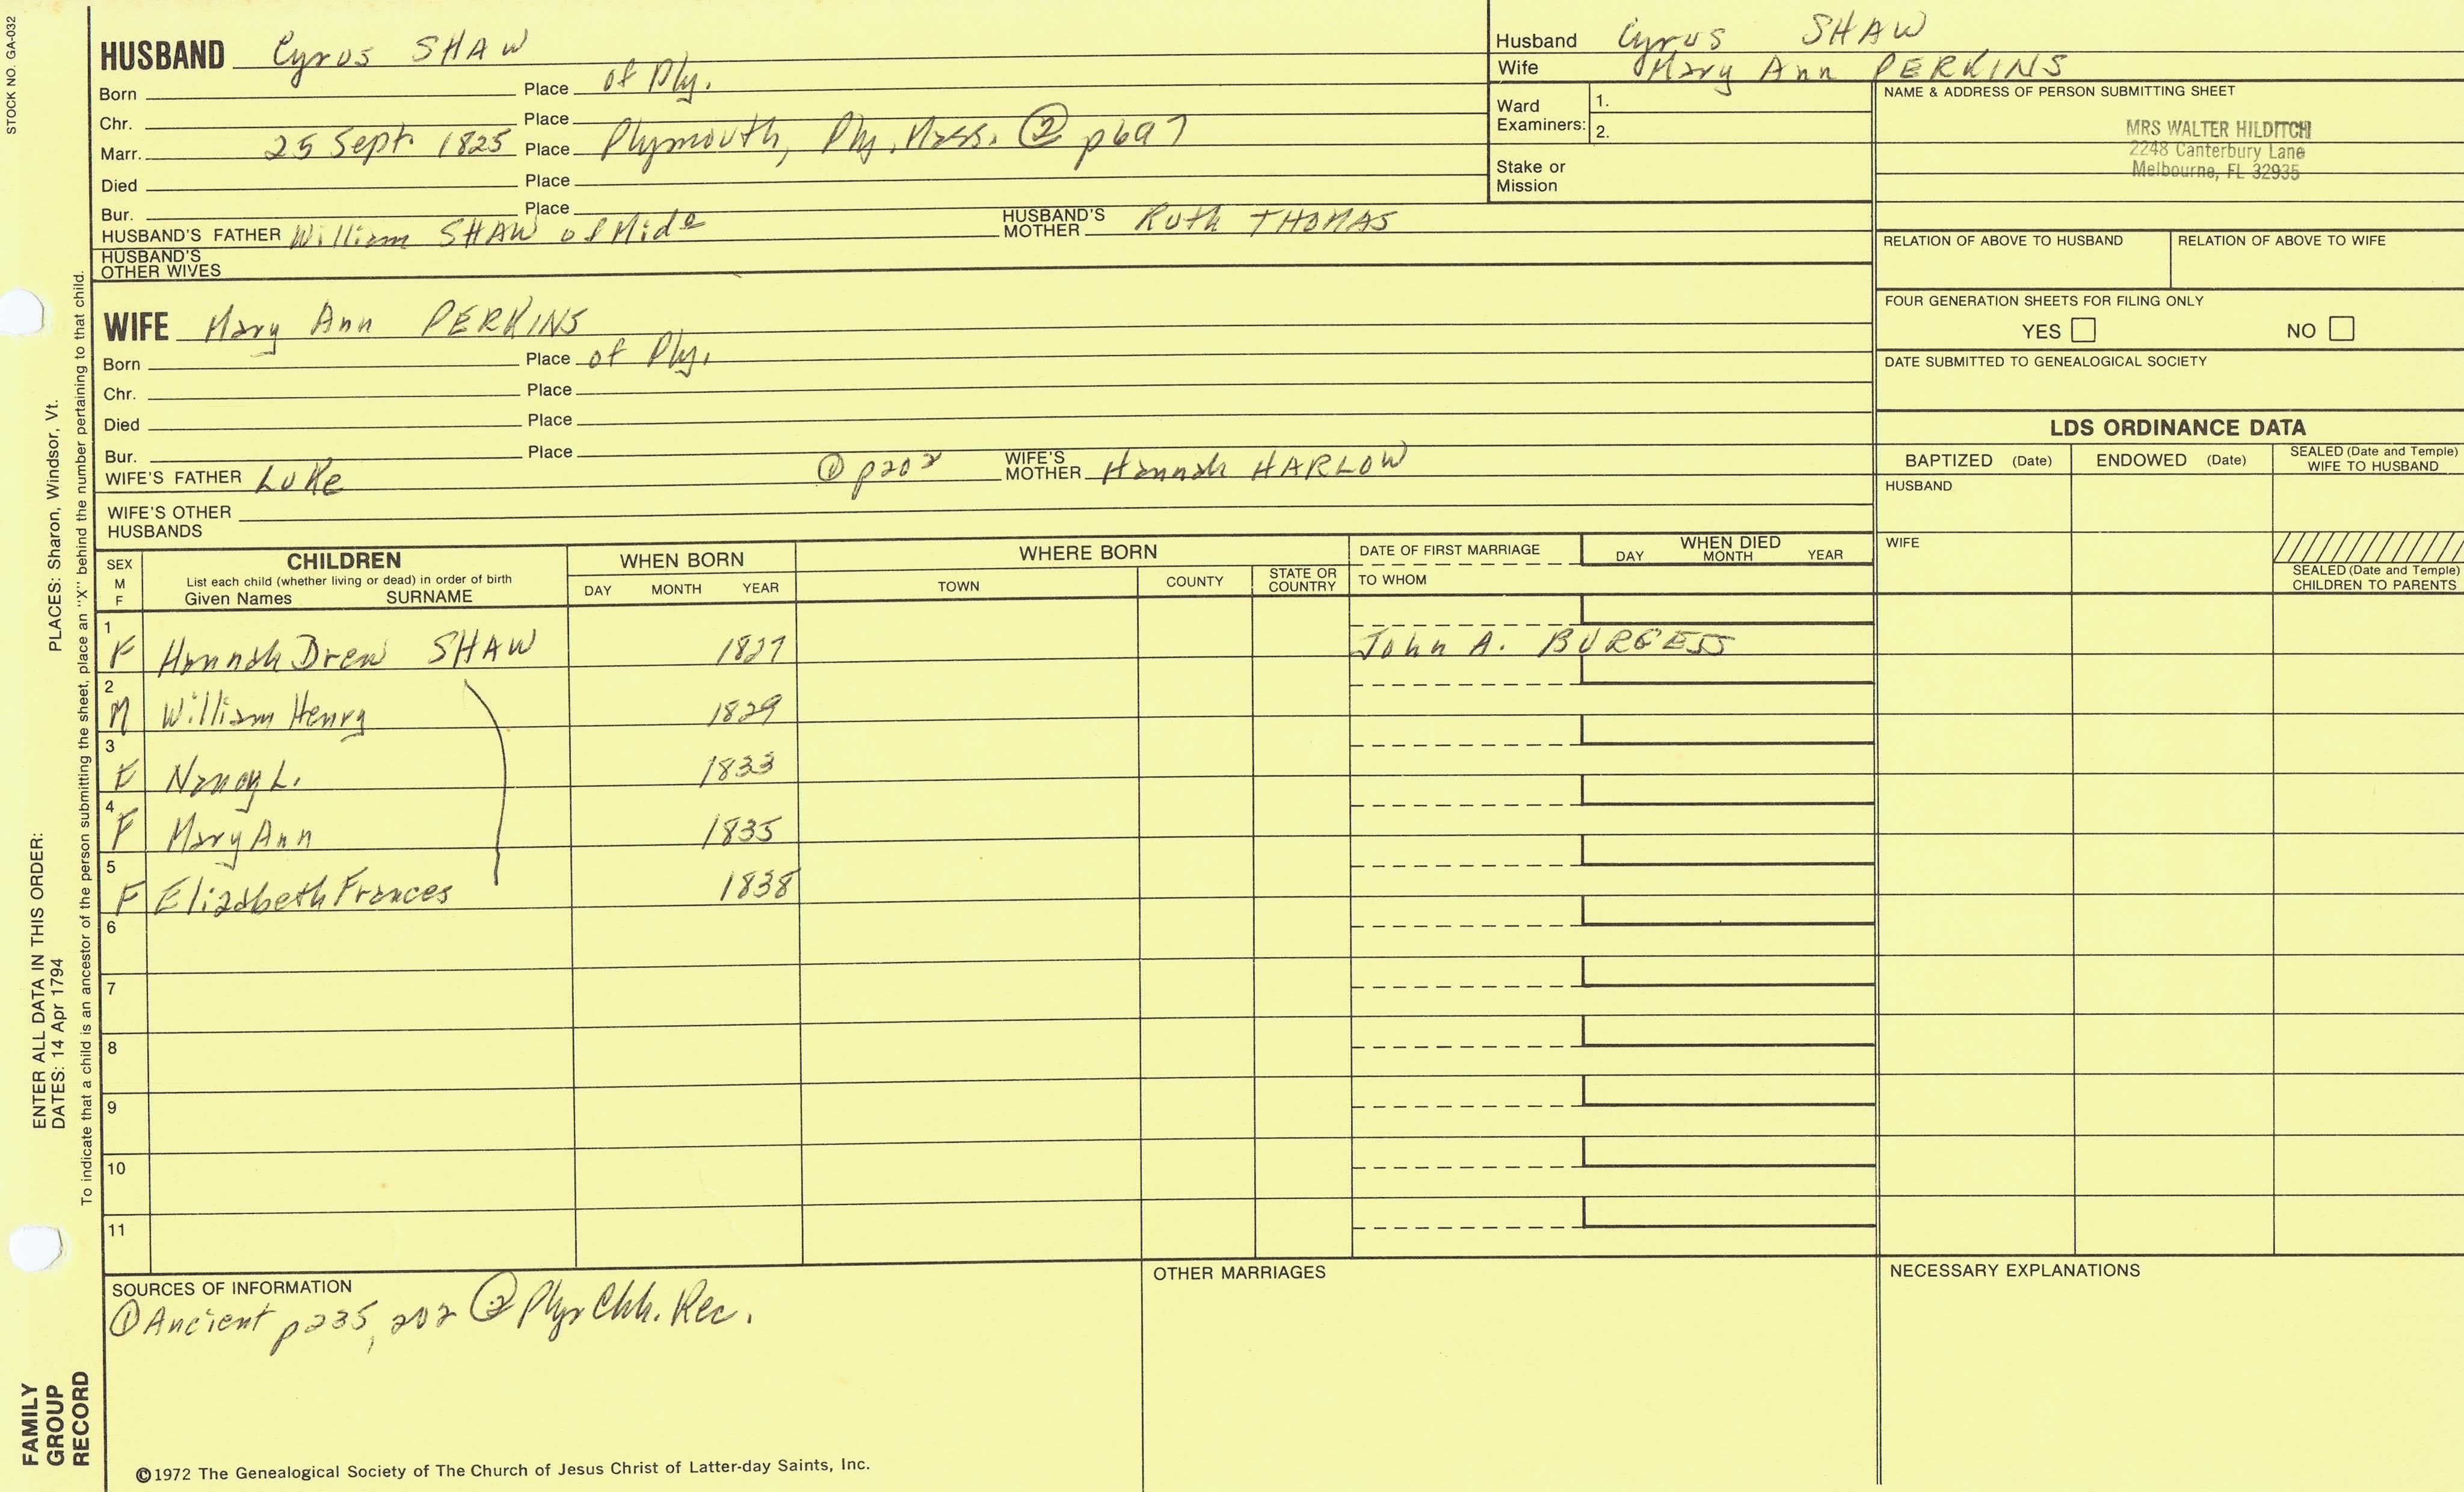 STOCK NO. GA-032
HUSBAND Cyrus SHAW
Born Place of Ply.
Chr. Place
Marr. 25 Sept. 1825 Place Plymouth, Ply. Mass. ② p697
Died Place
Bur. Place
HUSBAND'S FATHER William SHAW of Mid^o HUSBAND'S MOTHER Ruth THOMAS
HUSBAND'S OTHER WIVES
WIFE Mary Ann PERKINS
Born Place of Ply.
Chr. Place
Died Place
Bur. Place
WIFE'S FATHER Luke ① p202 WIFE'S MOTHER Hannah HARLOW
WIFE'S OTHER HUSBANDS
Husband Cyrus SHAW
Wife Mary Ann PERKINS
Ward Examiners: 1.
2.
Stake or Mission
NAME & ADDRESS OF PERSON SUBMITTING SHEET
MRS WALTER HILDITCH
2248 Canterbury Lane
Melbourne, FL 32935
RELATION OF ABOVE TO HUSBAND RELATION OF ABOVE TO WIFE
FOUR GENERATION SHEETS FOR FILING ONLY
YES NO
DATE SUBMITTED TO GENEALOGICAL SOCIETY
LDS ORDINANCE DATA
BAPTIZED (Date) ENDOWED (Date) SEALED (Date and Temple) WIFE TO HUSBAND
HUSBAND
WIFE
SEALED (Date and Temple) CHILDREN TO PARENTS
SEX M F CHILDREN WHEN BORN WHERE BORN DATE OF FIRST MARRIAGE WHEN DIED
List each child (whether living or dead) in order of birth
Given Names SURNAME DAY MONTH YEAR TOWN COUNTY STATE OR COUNTRY TO WHOM DAY MONTH YEAR
1 F Hannah Drew SHAW 1827 John A. BURGESS
2 M William Henry 1829
3 F Nancy L. 1833
4 F Mary Ann 1835
5 F Elizabeth Frances 1838
6
7
8
9
10
11
SOURCES OF INFORMATION
① Ancient p235, 202 ② Ply Chh. Rec.
OTHER MARRIAGES
NECESSARY EXPLANATIONS
©1972 The Genealogical Society of The Church of Jesus Christ of Latter-day Saints, Inc.
FAMILY GROUP RECORD
ENTER ALL DATA IN THIS ORDER:
DATES: 14 Apr 1794 PLACES: Sharon, Windsor, Vt.
To indicate that a child is an ancestor of the person submitting the sheet, place an "X" behind the number pertaining to that child.